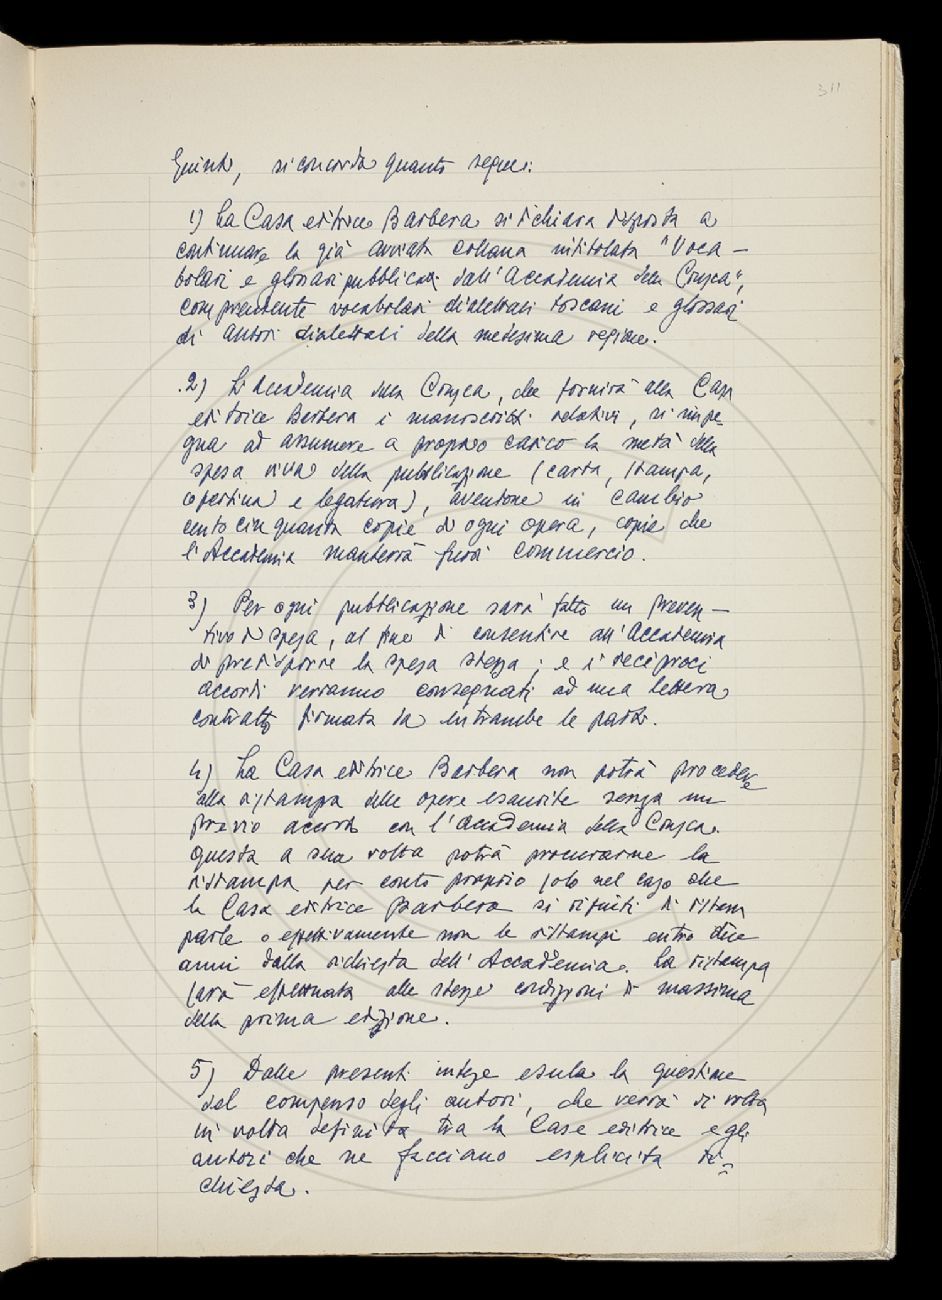 311
Quindi, si concorda quanto segue:
1) La Casa editrice Barbera si dichiara disposta a
continuare la già avviata collana intitolata "Voca-
bolari e glossari pubblicati dall'Accademia della Crusca",
comprendente vocabolari dialettali toscani e glossari
di autori dialettali della medesima regione.
2) L'Accademia della Crusca, che fornirà alla Casa
editrice Barbera i manoscritti relativi, si impe-
gna ad assumere a proprio carico la metà della
spesa viva della pubblicazione (carta, stampa,
copertina e legatura), avendone in cambio
cento cinquanta copie di ogni opera, copie che
l'Accademia manterrà fuori commercio.
3) Per ogni pubblicazione sarà fatto un preven-
tivo di spesa, al fine di consentire all'Accademia
di predisporre la spesa stessa; e i reciproci
accordi verranno consegnati ad una lettera
contratto firmata da entrambe le parti.
4) La Casa editrice Barbera non potrà procedere
alla ristampa delle opere esaurite senza un
previo accordo con l'Accademia della Crusca.
Questa a sua volta potrà procurarne la
ristampa per conto proprio solo nel caso che
la Casa editrice Barbera si rifiuti di ristam
parle o effettivamente non le ristampi entro due
anni dalla richiesta dell'Accademia. La ristampa
sarà effettuata alle stesse condizioni di massima
della prima edizione.
5) Dalle presenti intese esula la questione
del compenso degli autori, che verrà di volta
in volta definita tra la Casa editrice e gli
autori che ne facciano esplicita ri=
chiesta.